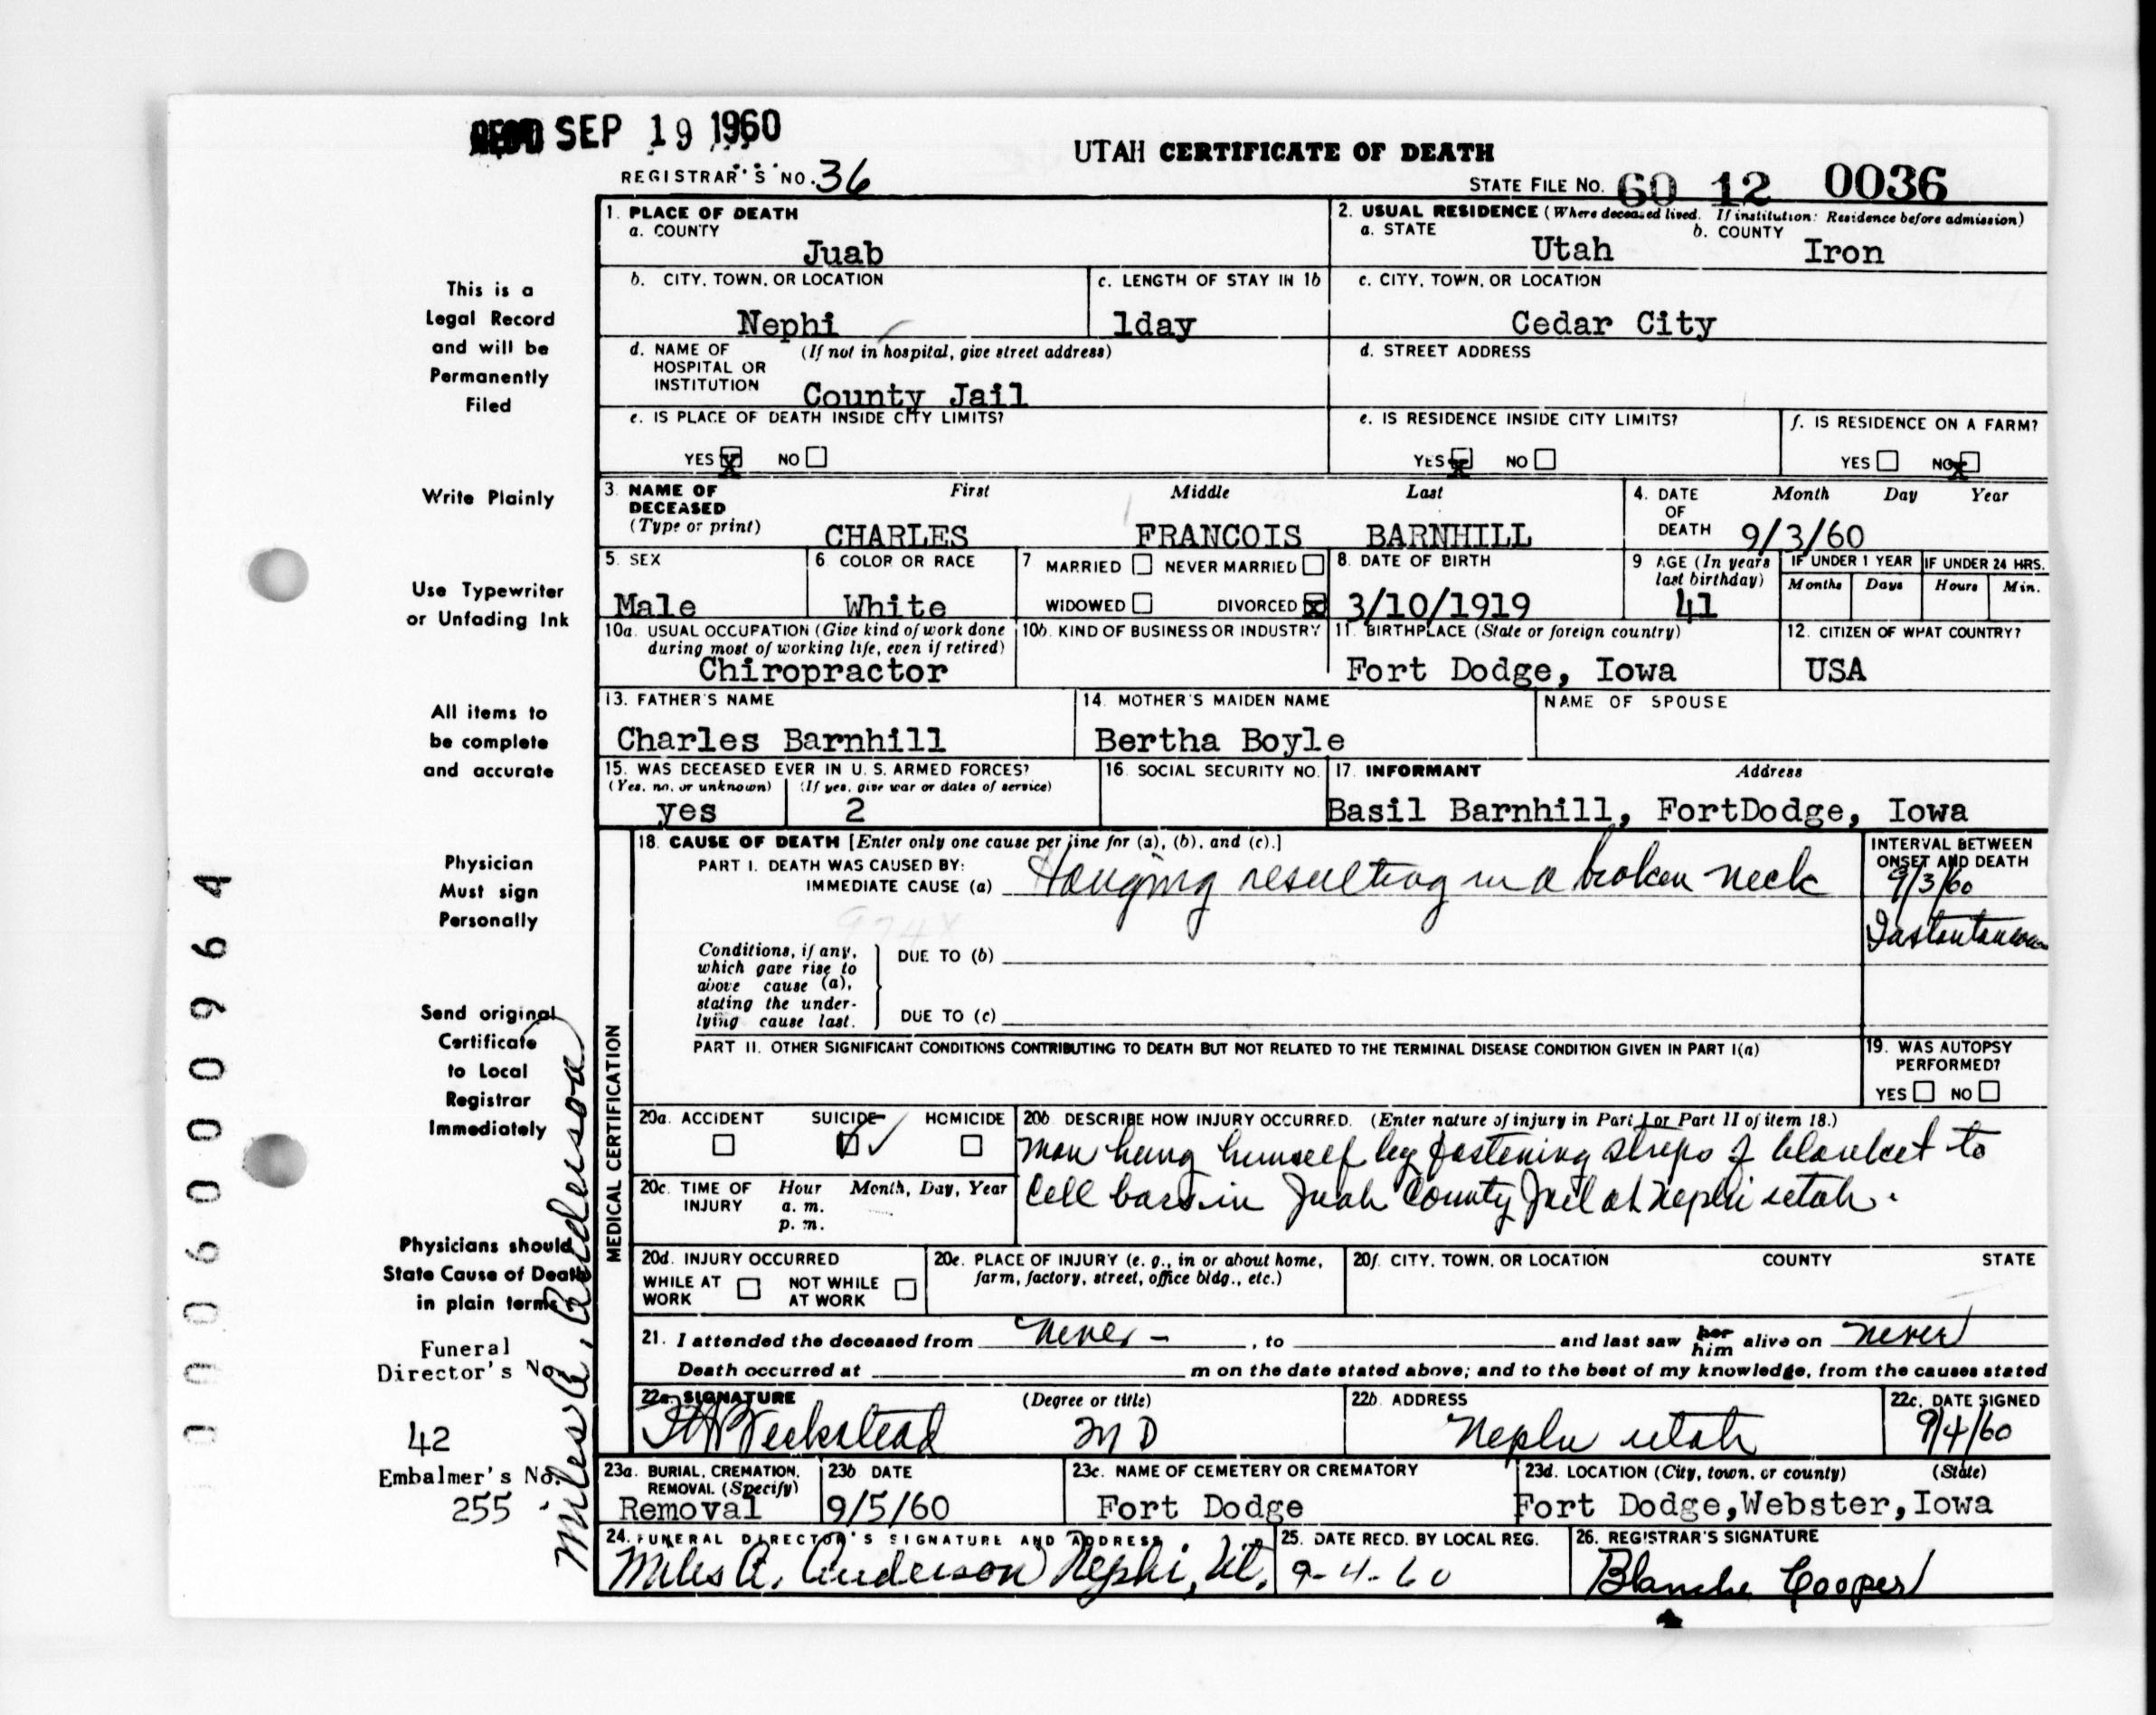 REC'D SEP 19 1960
UTAH CERTIFICATE OF DEATH
REGISTRAR'S NO. 36
STATE FILE NO. 60 12 0036
1. PLACE OF DEATH
a. COUNTY
Juab
2. USUAL RESIDENCE (Where deceased lived. If institution: Residence before admission)
a. STATE b. COUNTY
Utah Iron
b. CITY, TOWN, OR LOCATION
Nephi
c. LENGTH OF STAY IN 1b
1day
c. CITY, TOWN, OR LOCATION
Cedar City
d. NAME OF (If not in hospital, give street address)
HOSPITAL OR
INSTITUTION County Jail
d. STREET ADDRESS
e. IS PLACE OF DEATH INSIDE CITY LIMITS?
YES X NO
e. IS RESIDENCE INSIDE CITY LIMITS?
YES X NO
f. IS RESIDENCE ON A FARM?
YES NO X
3. NAME OF DECEASED (Type or print) First Middle Last
CHARLES FRANCOIS BARNHILL
4. DATE OF DEATH Month Day Year
9/3/60
5. SEX
Male
6. COLOR OR RACE
White
7 MARRIED NEVER MARRIED
WIDOWED DIVORCED X
8. DATE OF BIRTH
3/10/1919
9 AGE (In years last birthday)
41
IF UNDER 1 YEAR IF UNDER 24 HRS.
Months Days Hours Min.
10a. USUAL OCCUPATION (Give kind of work done
during most of working life, even if retired)
Chiropractor
10b. KIND OF BUSINESS OR INDUSTRY
11. BIRTHPLACE (State or foreign country)
Fort Dodge, Iowa
12. CITIZEN OF WHAT COUNTRY?
USA
13. FATHER'S NAME
Charles Barnhill
14. MOTHER'S MAIDEN NAME
Bertha Boyle
NAME OF SPOUSE
15. WAS DECEASED EVER IN U. S. ARMED FORCES?
(Yes, no, or unknown) (If yes, give war or dates of service)
yes 2
16. SOCIAL SECURITY NO.
17. INFORMANT Address
Basil Barnhill, FortDodge, Iowa
MEDICAL CERTIFICATION
18. CAUSE OF DEATH [Enter only one cause per line for (a), (b), and (c).]
PART I. DEATH WAS CAUSED BY:
IMMEDIATE CAUSE (a) Hanging resulting in a broken neck
974X
INTERVAL BETWEEN
ONSET AND DEATH
9/3/60
Instantaneous
Conditions, if any,
which gave rise to
above cause (a),
stating the under-
lying cause last.
DUE TO (b)
DUE TO (c)
PART II. OTHER SIGNIFICANT CONDITIONS CONTRIBUTING TO DEATH BUT NOT RELATED TO THE TERMINAL DISEASE CONDITION GIVEN IN PART I(a)
19. WAS AUTOPSY
PERFORMED?
YES NO
20a. ACCIDENT SUICIDE HOMICIDE
20b DESCRIBE HOW INJURY OCCURRED. (Enter nature of injury in Part I or Part II of item 18.)
Man hung himself by fastening strips of blanket to
Cell bars in Juab County Jail at Nephi utah.
20c. TIME OF INJURY Hour Month, Day, Year
a. m.
p. m.
20d. INJURY OCCURRED
WHILE AT WORK NOT WHILE AT WORK
20e. PLACE OF INJURY (e. g., in or about home,
farm, factory, street, office bldg., etc.)
20f. CITY, TOWN, OR LOCATION COUNTY STATE
21. I attended the deceased from never - , to and last saw her him alive on never
Death occurred at m on the date stated above; and to the best of my knowledge, from the causes stated
22a. SIGNATURE (Degree or title)
Beckstead M D
22b. ADDRESS
Nephi utah
22c. DATE SIGNED
9/4/60
23a. BURIAL, CREMATION,
REMOVAL (Specify)
Removal
23b DATE
9/5/60
23c. NAME OF CEMETERY OR CREMATORY
Fort Dodge
23d. LOCATION (City, town, or county) (State)
Fort Dodge,Webster,Iowa
24. FUNERAL DIRECTOR'S SIGNATURE AND ADDRESS
Miles A. Anderson Nephi, Ut.
25. DATE RECD. BY LOCAL REG.
9-4-60
26. REGISTRAR'S SIGNATURE
Blanche Cooper
This is a
Legal Record
and will be
Permanently
Filed
Write Plainly
Use Typewriter
or Unfading Ink
All items to
be complete
and accurate
Physician
Must sign
Personally
Send original
Certificate
to Local
Registrar
Immediately
Physicians should
State Cause of Death
in plain terms
Funeral
Director's No.
42
Embalmer's No.
255
Miles A. Anderson
0006000964